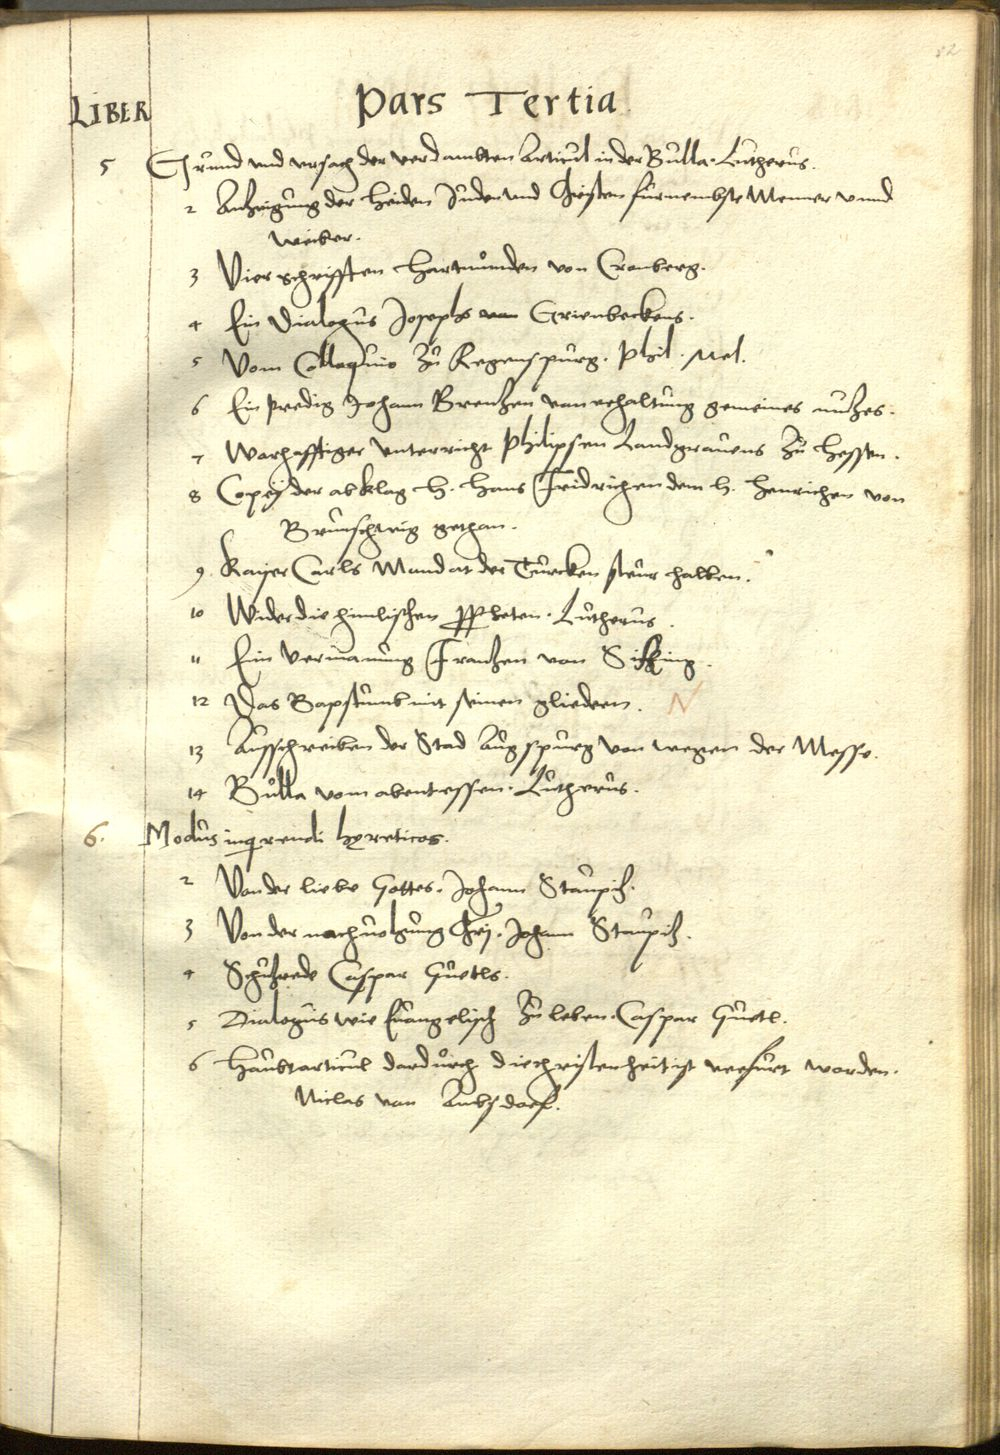 82
LIBER Pars Tertia
5 Grund vnd vrsach der verdambten Articul in der Bulla. Lutherus.
2 Anzeigung der Heiden Juden vnd Christen fürnembste Menner vnnd
weiber.
3 Vier schrifften Hartmůnden von Cronberg.
4 Ein Dialogus Josephs von Grienbeckens.
5 Vom Colloquio zů Regenspurg. Phil. Mel.
6 Ein predig Johann Brentzen von erhaltung gemeines nutzes.
7 Warhafftiger vnterricht Philipsen Landgrauens zů Hessen.
8 Copeÿ der abklag H. Hans Fridrichen dem H. Henrichen von
Brunschwig gethan.
9. Kaÿser Carls Mandat der Türcken steur halben.
10 Wider die himlischen Propheten. Lutherus.
11 Ein vermanung Frantzen von Sikking.
12 Das Bapstumb mit seinen gliedern. N
13 Ausschreiben der Stad Augspurg von wegen der Messe.
14 Bůlla vom abentessen. Lutherus.
6. Modus inqrendi hęreticos.
2 Von der liebe Gottes. Johann Staupitz.
3 Von der nachuolgung Chrj. Johann Staupitz.
4 Schutzrede Caspar Guetls.
5 Dialogus wie Euangelisch zů leben. Caspar Guetl.
6 Haubtarticul dardůrch die christenheit ist verfurt worden.
Niclas von Ambsdorf.